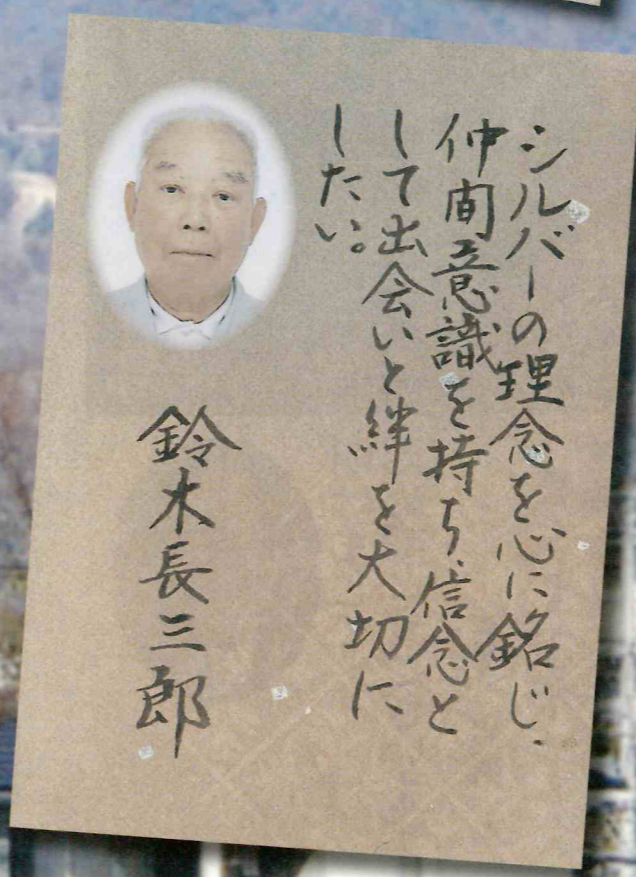 シルバーの理念を心に銘じ、
仲間意識を持ち、信念と
して出会いと絆を大切に
したい。
鈴木長三郎